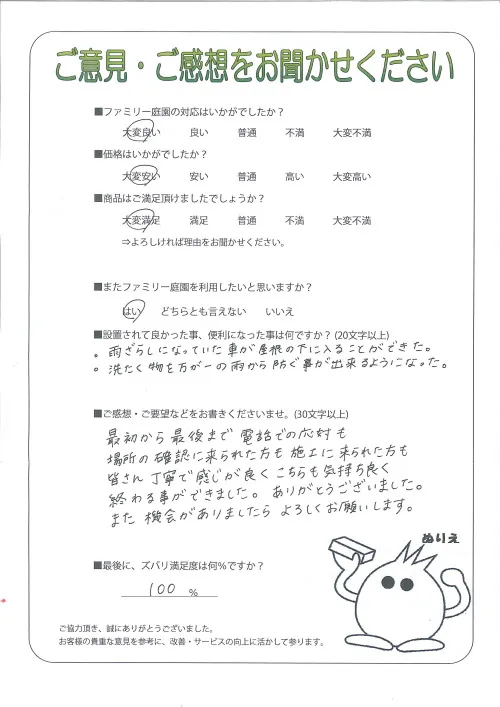 ご意見・ご感想をお聞かせください
■ファミリー庭園の対応はいかがでしたか？
大変良い 良い 普通 不満 大変不満
■価格はいかがでしたか？
大変安い 安い 普通 高い 大変高い
■商品はご満足頂けましたでしょうか？
大変満足 満足 普通 不満 大変不満
⇒よろしければ理由をお聞かせください。
■またファミリー庭園を利用したいと思いますか？
はい どちらとも言えない いいえ
■設置されて良かった事、便利になった事は何ですか？(20文字以上)
。雨ざらしになっていた車が屋根の下に入ることができた。
。洗たく物を万が一の雨から防ぐ事が出来るようになった。
■ご感想・ご要望などをお書きくださいませ。(30文字以上)
最初から最後まで電話での応対も
場所の確認に来られた方も施工に来られた方も
皆さん丁寧で感じが良くこちらも気持ち良く
終わる事ができました。ありがとうございました。
また機会がありましたらよろしくお願いします。
ぬりえ
■最後に、ズバリ満足度は何％ですか？
100 %
ご協力頂き、誠にありがとうございました。
お客様の貴重な意見を参考に、改善・サービスの向上に活かして参ります。